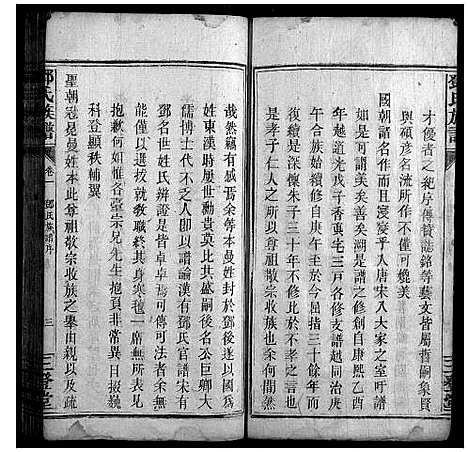 才優者之紀序傳贊誌銘等藝文皆屬哲嗣象賢
與碩彥名流所作不僅可媲美
國朝諸名作而且浸浸乎入唐宋八大家之室旴譜
如是可謂美矣善矣顧是譜之修創自康熙乙酉
年越道光戊子香眞宅三戶各修支譜越同治庚
午合族始續修自庚午至於今屈指三十餘年而
復續是深懍朱子三十年不修比於不孝之言也
是孝子仁人之所以尊祖敬宗收族也余何間然
哉然竊有感焉余等本曼姓封於鄧後遂以國為
姓東漢時屢世勳貴莫比其盛嗣後名公巨卿大
儒博士代不乏人即以譜論漢有鄧氏官譜宋有
鄧名世姓氏辨證是皆卓卓可傳可法者余無
能僅以選拔就教職終其身寒氊一席無所表見
抱歉何如惟各臺宗兄先生抱負非常異日報捷
科登顯秩輔翼
聖朝冠冕曼姓本此尊祖敬宗收族之舉由親以及疏
鄧氏族譜
卷一
鄧氏族譜序
三
三登堂